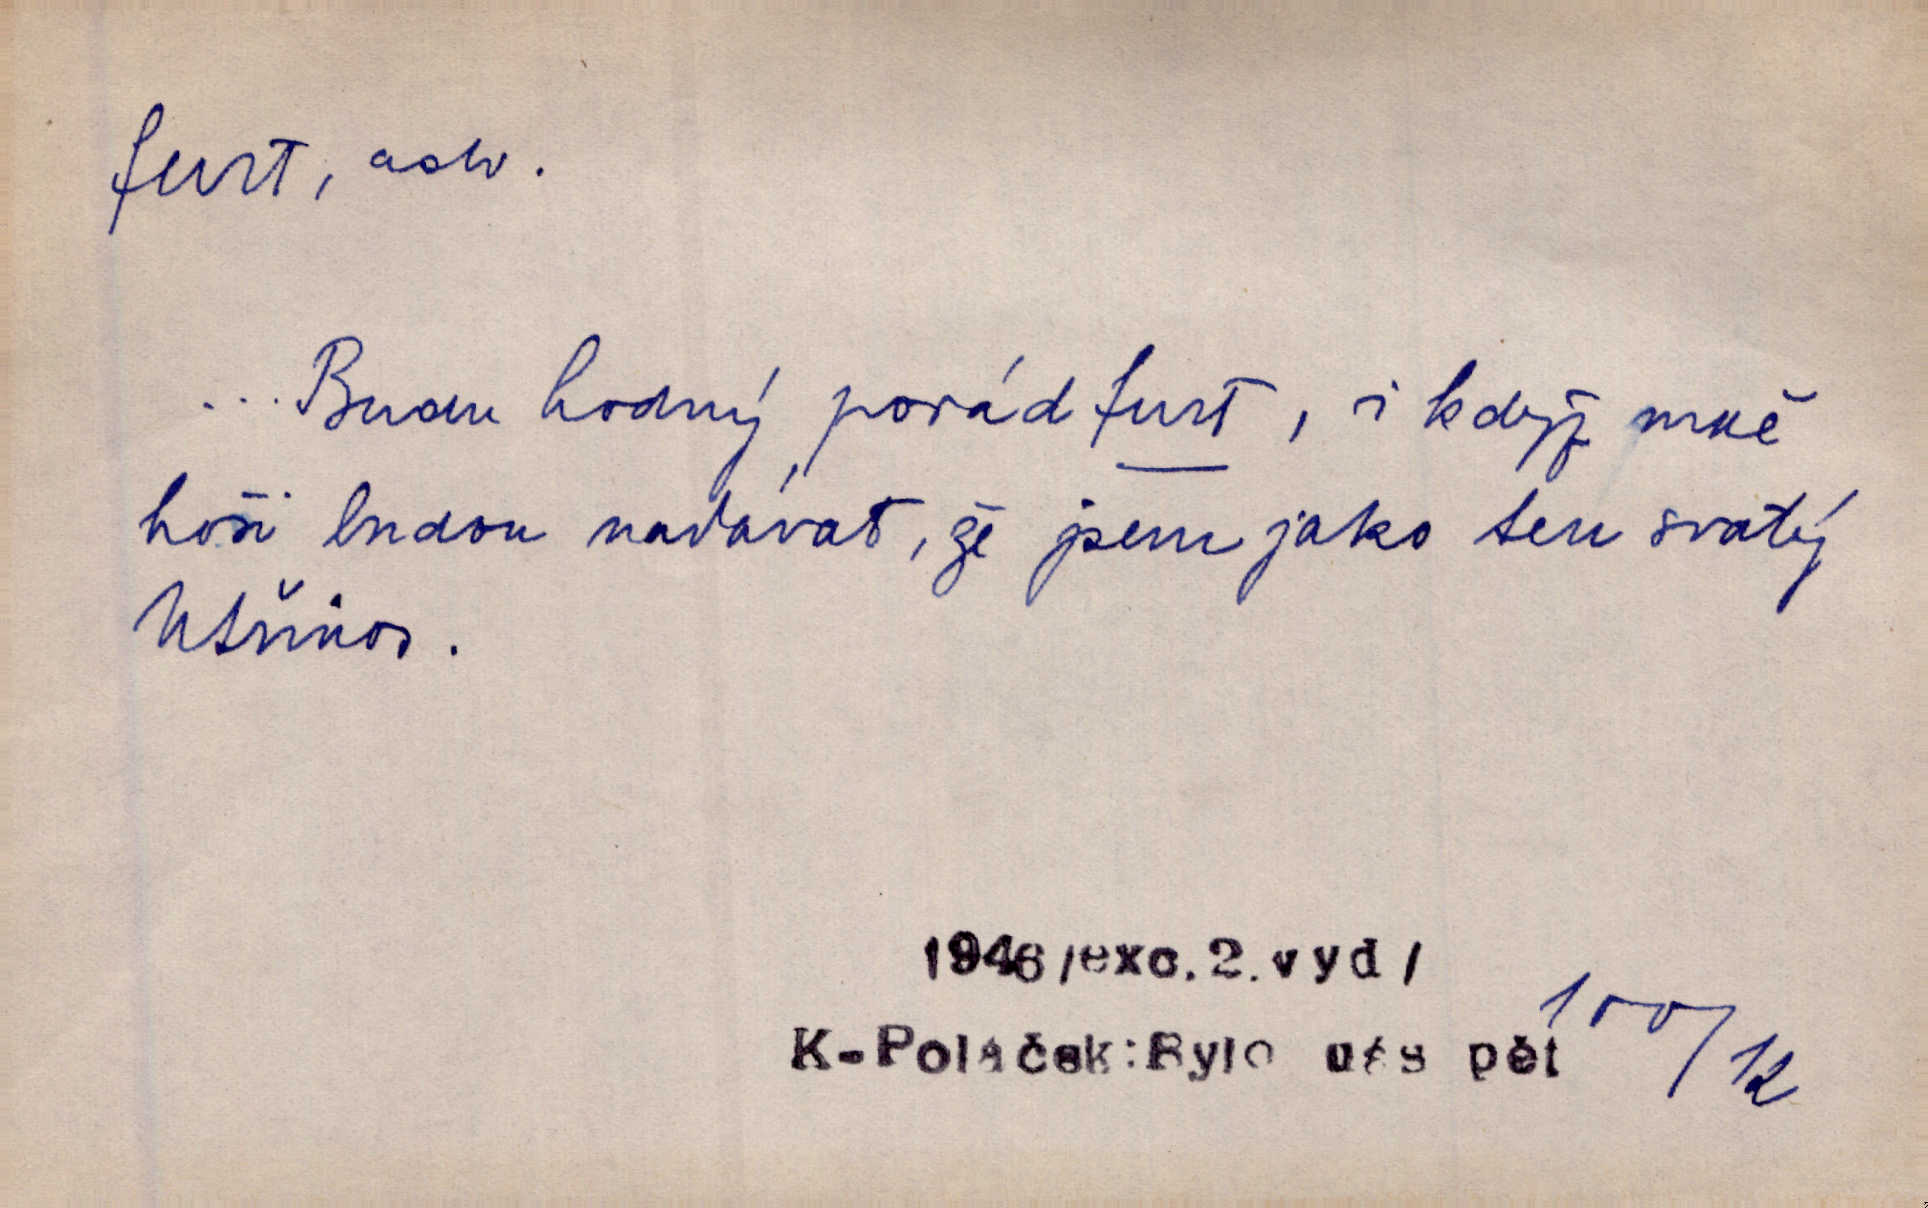 furt, adv.
... Budu hodný, porád furt, i když mně
hoši budou nadávat, že jsem jako ten svatý
Utřinos.
1946/exc.2.vyd/
K-Poláček:Bylo nás pět
100/12